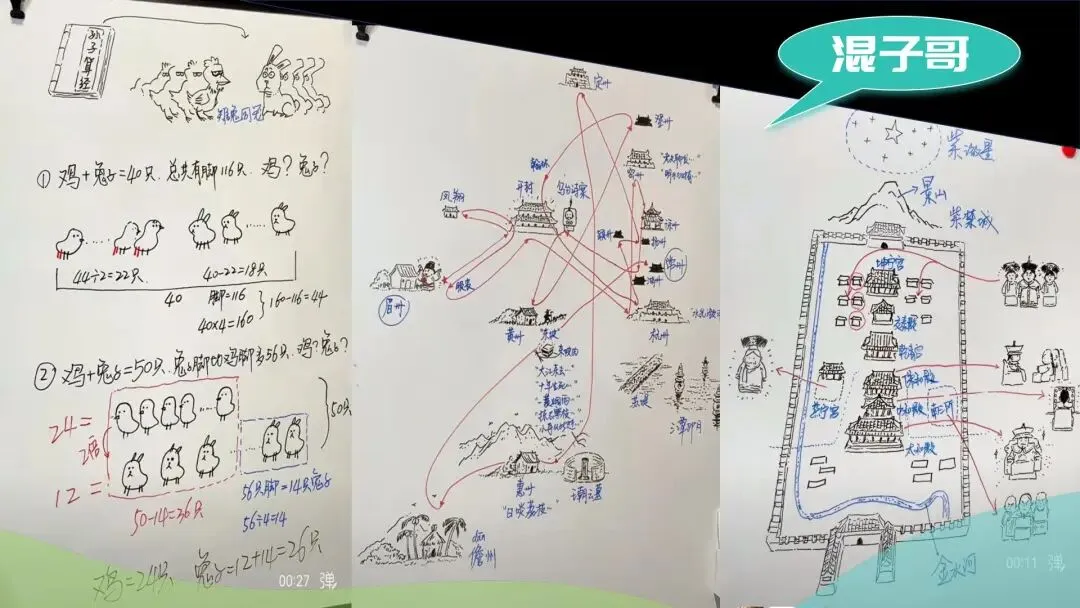 混子哥
孙子算经
① 鸡+兔子=40只.总共有脚116只. 鸡? 兔子?
44÷2=22只
40-22=18只
40
脚=116
40×4=160
160-116=44
② 鸡+兔子=50只.兔子脚比鸡脚多56只.鸡?兔子?
24=
2倍
12=
50只
50-14=36只
56只脚=14只兔子
56÷4=14
鸡=24只 兔子=12+14=26只
00:27 弹
定州
登州
密州
凤翔
开封
乌台诗案
徐州
扬州
湖州
眉州
黄州
杭州
"大江东去…"
苏堤
惠州
"日啖荔枝…"
儋州
紫微星
景山
紫禁城
坤宁宫
交泰殿
乾清宫
保和殿
中和殿
太和殿
慈宁宫
金水河
00:11 弹